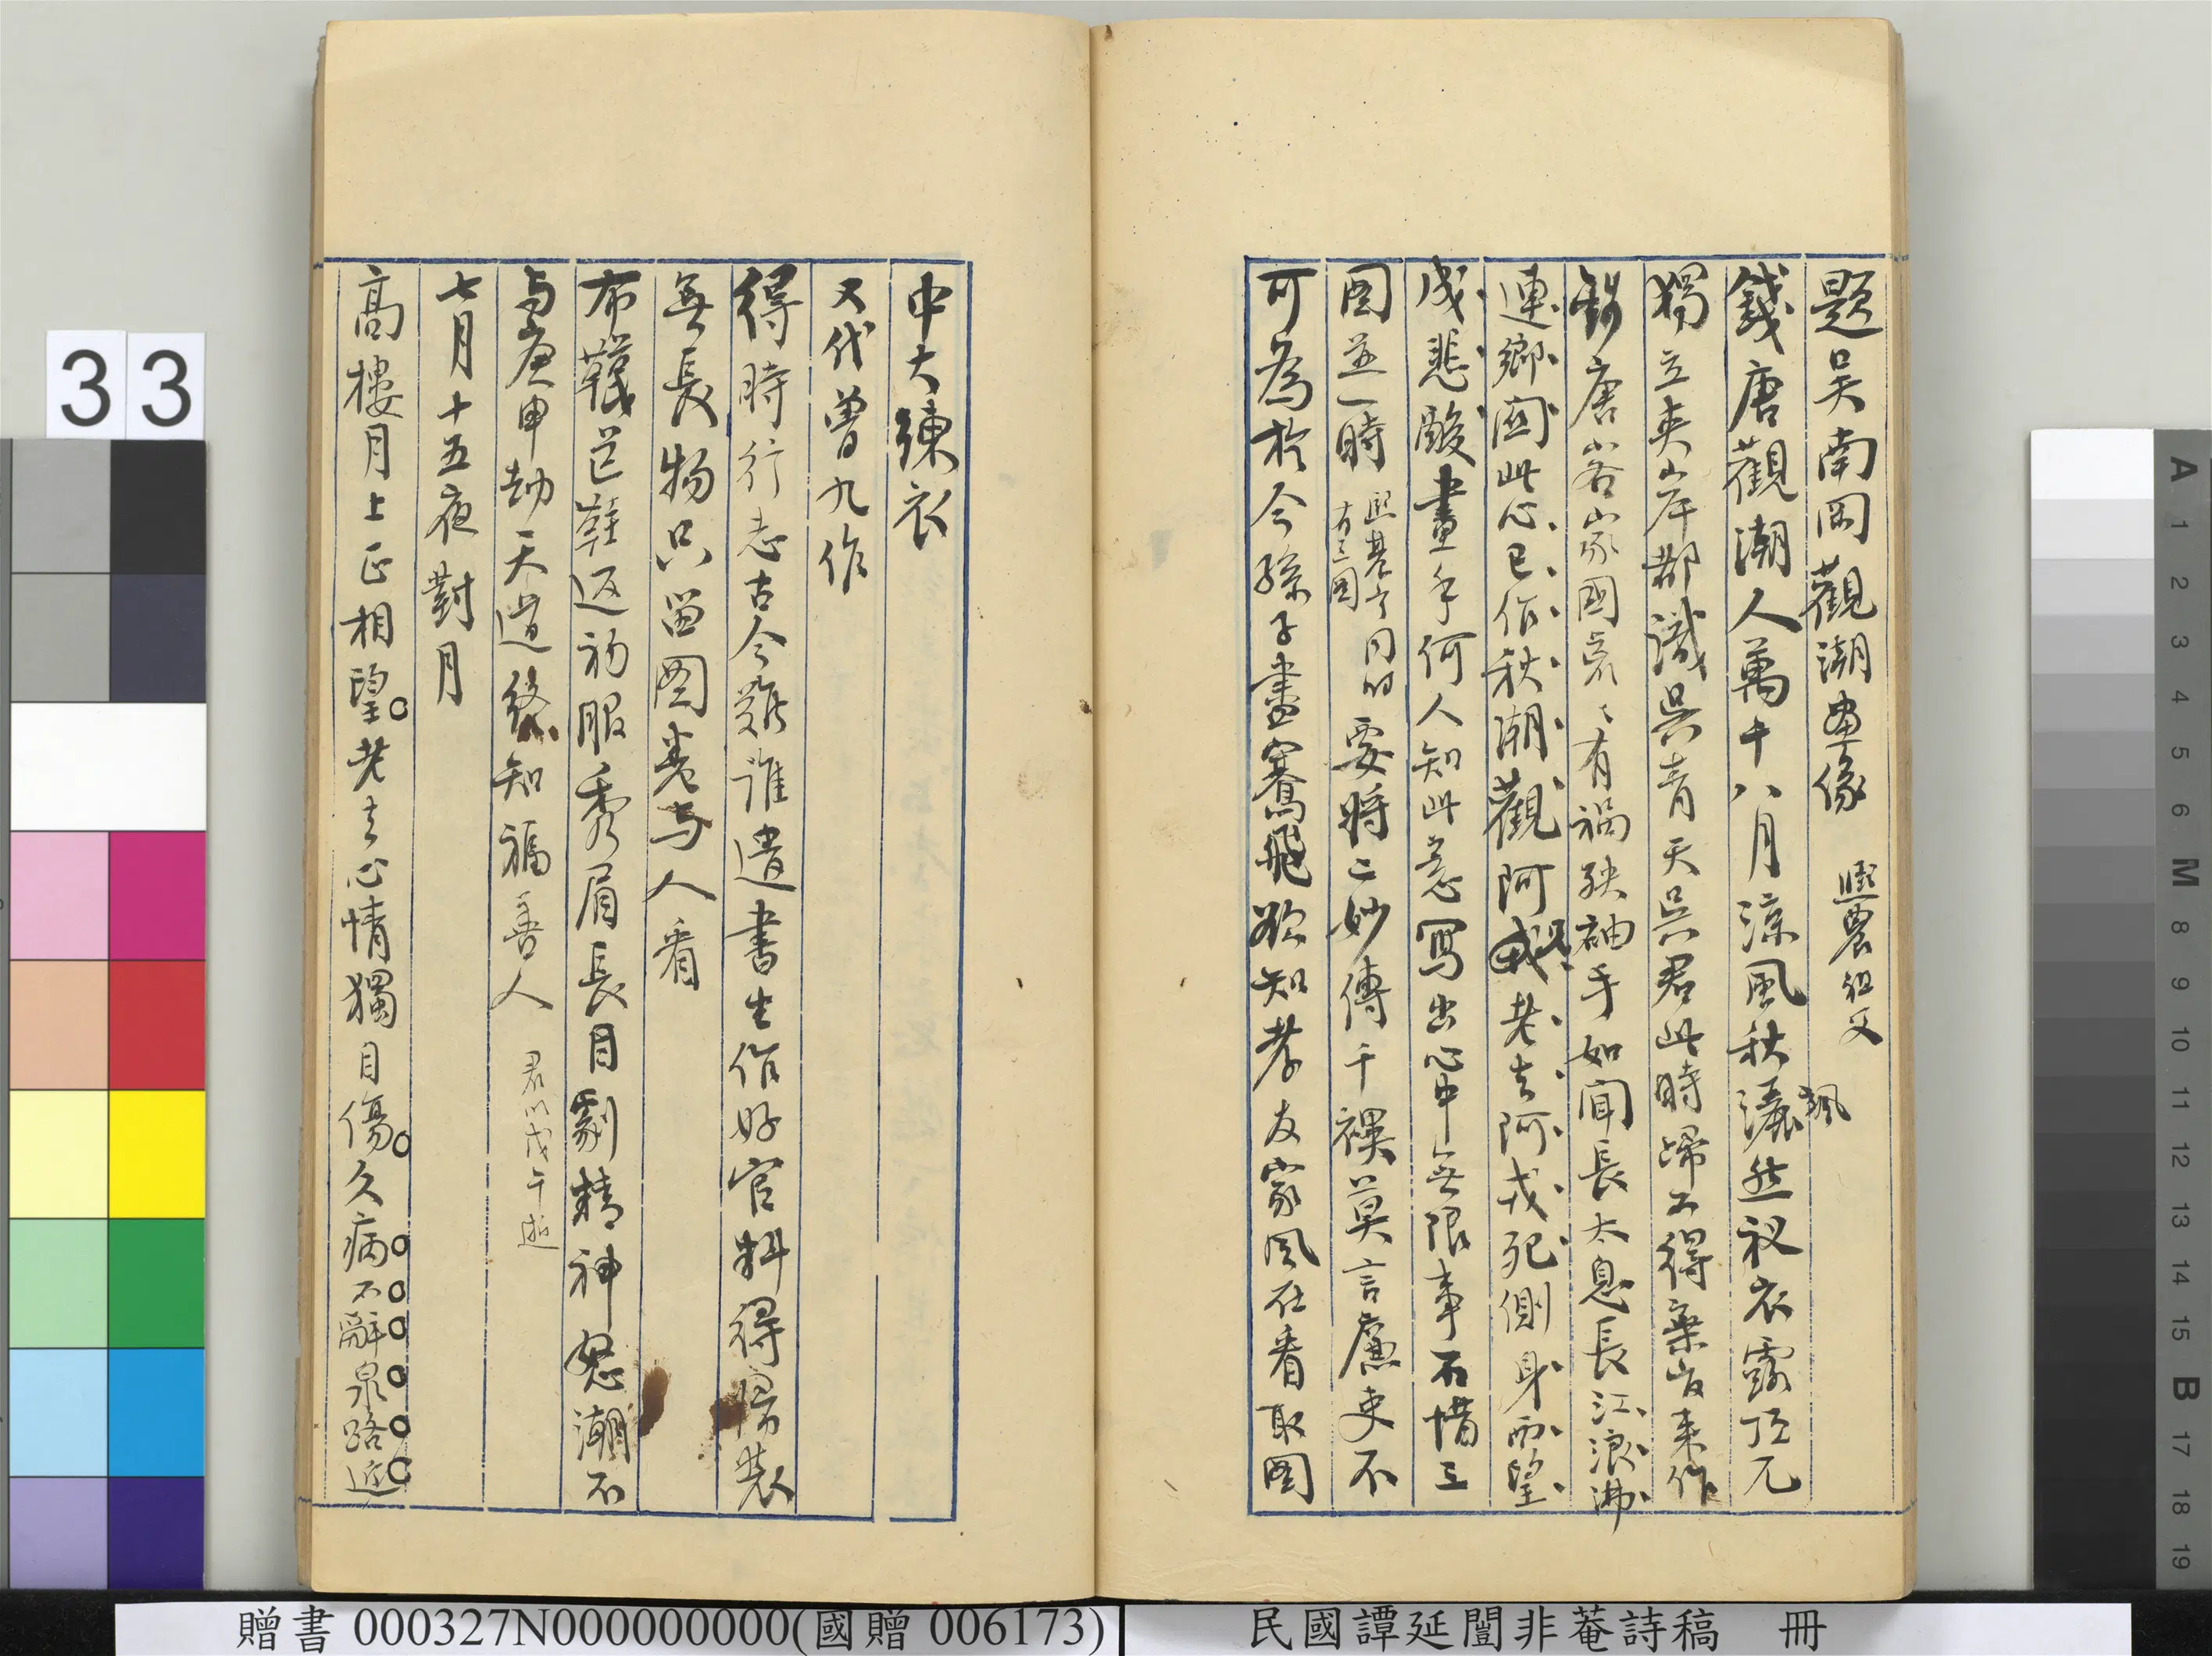 題吳南岡觀潮畫像 熙農祖父
錢唐觀潮人萬千八月涼風秋灑然衩衣露頂兀
颯
獨立夾岸都識吳青天吳君此時歸不得棄官來作
錢唐客家國哀哀有禍殃袖手如聞長太息長江浪沸
連鄉國此心已作秋潮觀阿兄老去阿戎死側身西望
成悲酸畫手何人知此意寫出心中無限事不惜三
圖並一時 同的要將二妙傳千禩莫言廉吏不
可為於今孫子畫騫飛欲知孝友家風在看取圖
中大練衣
又代曾九作
得時行志古今難誰遣書生作好官料得歸裝
無長物只留圖卷与人看
布韈芒鞋返初服秀眉長目劇精神怒潮不
与庚申劫天道終知福善人 君以戊午逝
七月十五夜對月
高樓月上正相望老去心情獨自傷久病不辭泉路近
33
A 1 2 3 4 5 6 M 8 9 10 11 12 13 14 15 B 17 18 19
贈書 000327N000000000(國贈 006173)
民國譚延闓非菴詩稿 冊